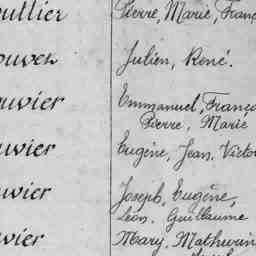 ullier Pierre, Marie, Franç
ouvet Julien, René.
uvier Emmanuel, Franço
Pierre, Marie
uvier Eugène, Jean, Victo
uvier Joseph, Eugène,
Léon, Guillaume
vier Mary, Mathurin